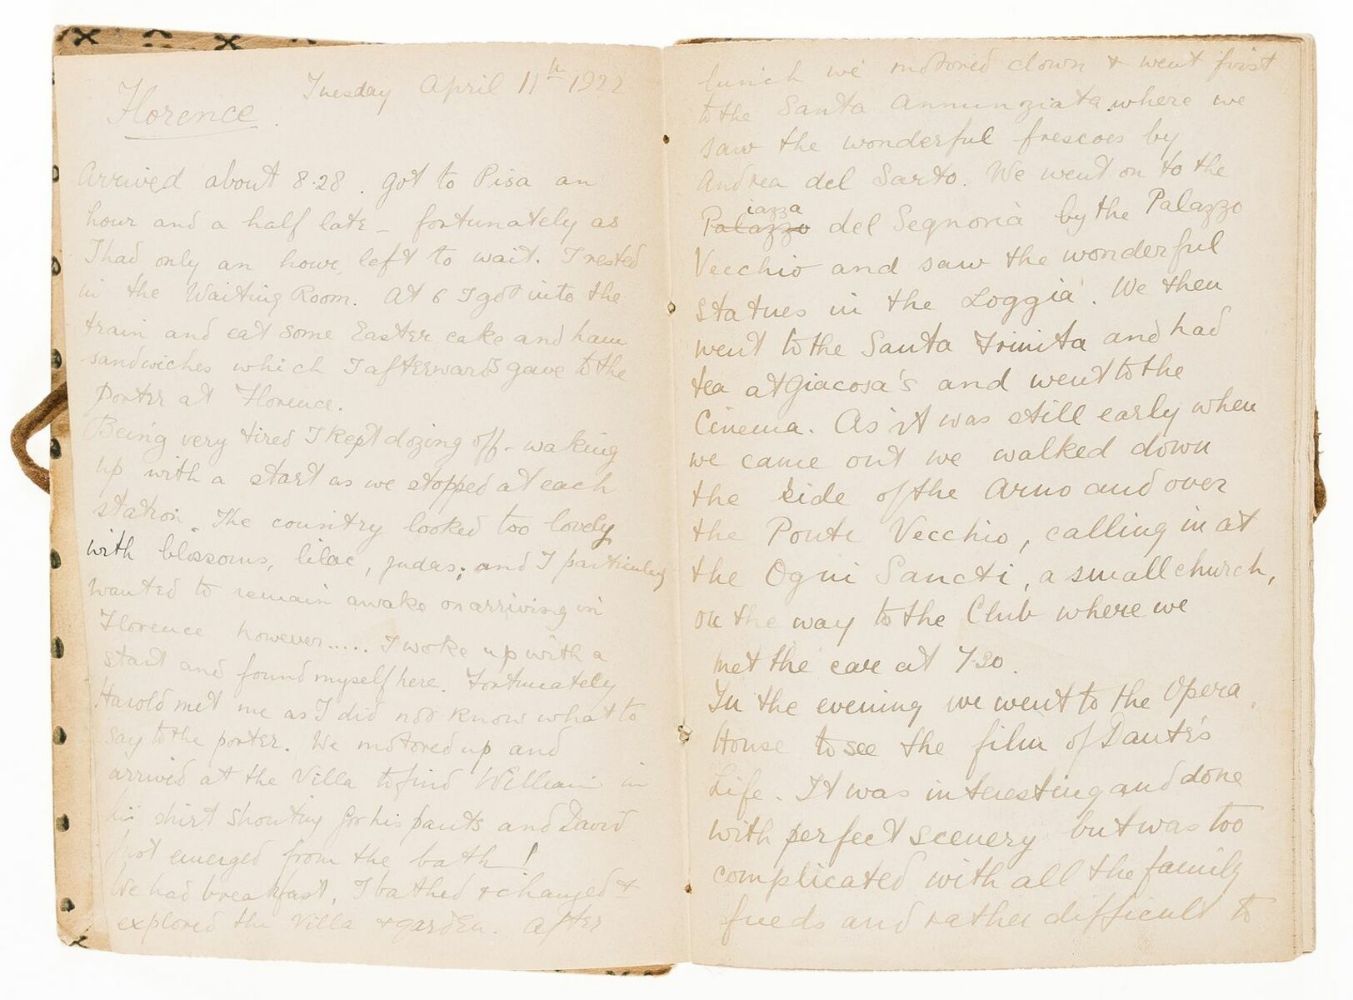 Tuesday April 11th 1922
Florence
Arrived about 8.28. Got to Pisa an
hour and a half late – fortunately as
I had only an hour left to wait. I rested
in the Waiting Room. At 6 I got into the
train and eat some Easter cake and ham
sandwiches which I afterwards gave to the
Porter at Florence.
Being very tired I kept dozing off – waking
up with a start as we stopped at each
station. The country looked too lovely
with blossoms, lilac, judas; and I particularly
wanted to remain awake on arriving in
Florence however..... I woke up with a
start and found myself here. Fortunately
Harold met me as I did not know what to
say to the porter. We motored up and
arrived at the Villa to find William in
his shirt shouting for his pants and David
just emerged from the bath!
We had breakfast, I bathed & changed &
explored the Villa & garden. After
lunch we motored down & went first
to the Santa Annunziata where we
saw the wonderful frescoes by
Andrea del Sarto. We went on to the
Palazzo iazza del Segnoria by the Palazzo
Vecchio and saw the wonderful
statues in the Loggia. We then
went to the Santa Trinita and had
tea at Giacosa's and went to the
Cinema. As it was still early when
we came out we walked down
the side of the Arno and over
the Ponte Vecchio, calling in at
the Ogni Sancti, a small church,
on the way to the Club where we
met the car at 7.30.
In the evening we went to the Opera
House to see the film of Dante's
Life. It was interesting and done
with perfect scenery but was too
complicated with all the family
fueds and rather difficult to